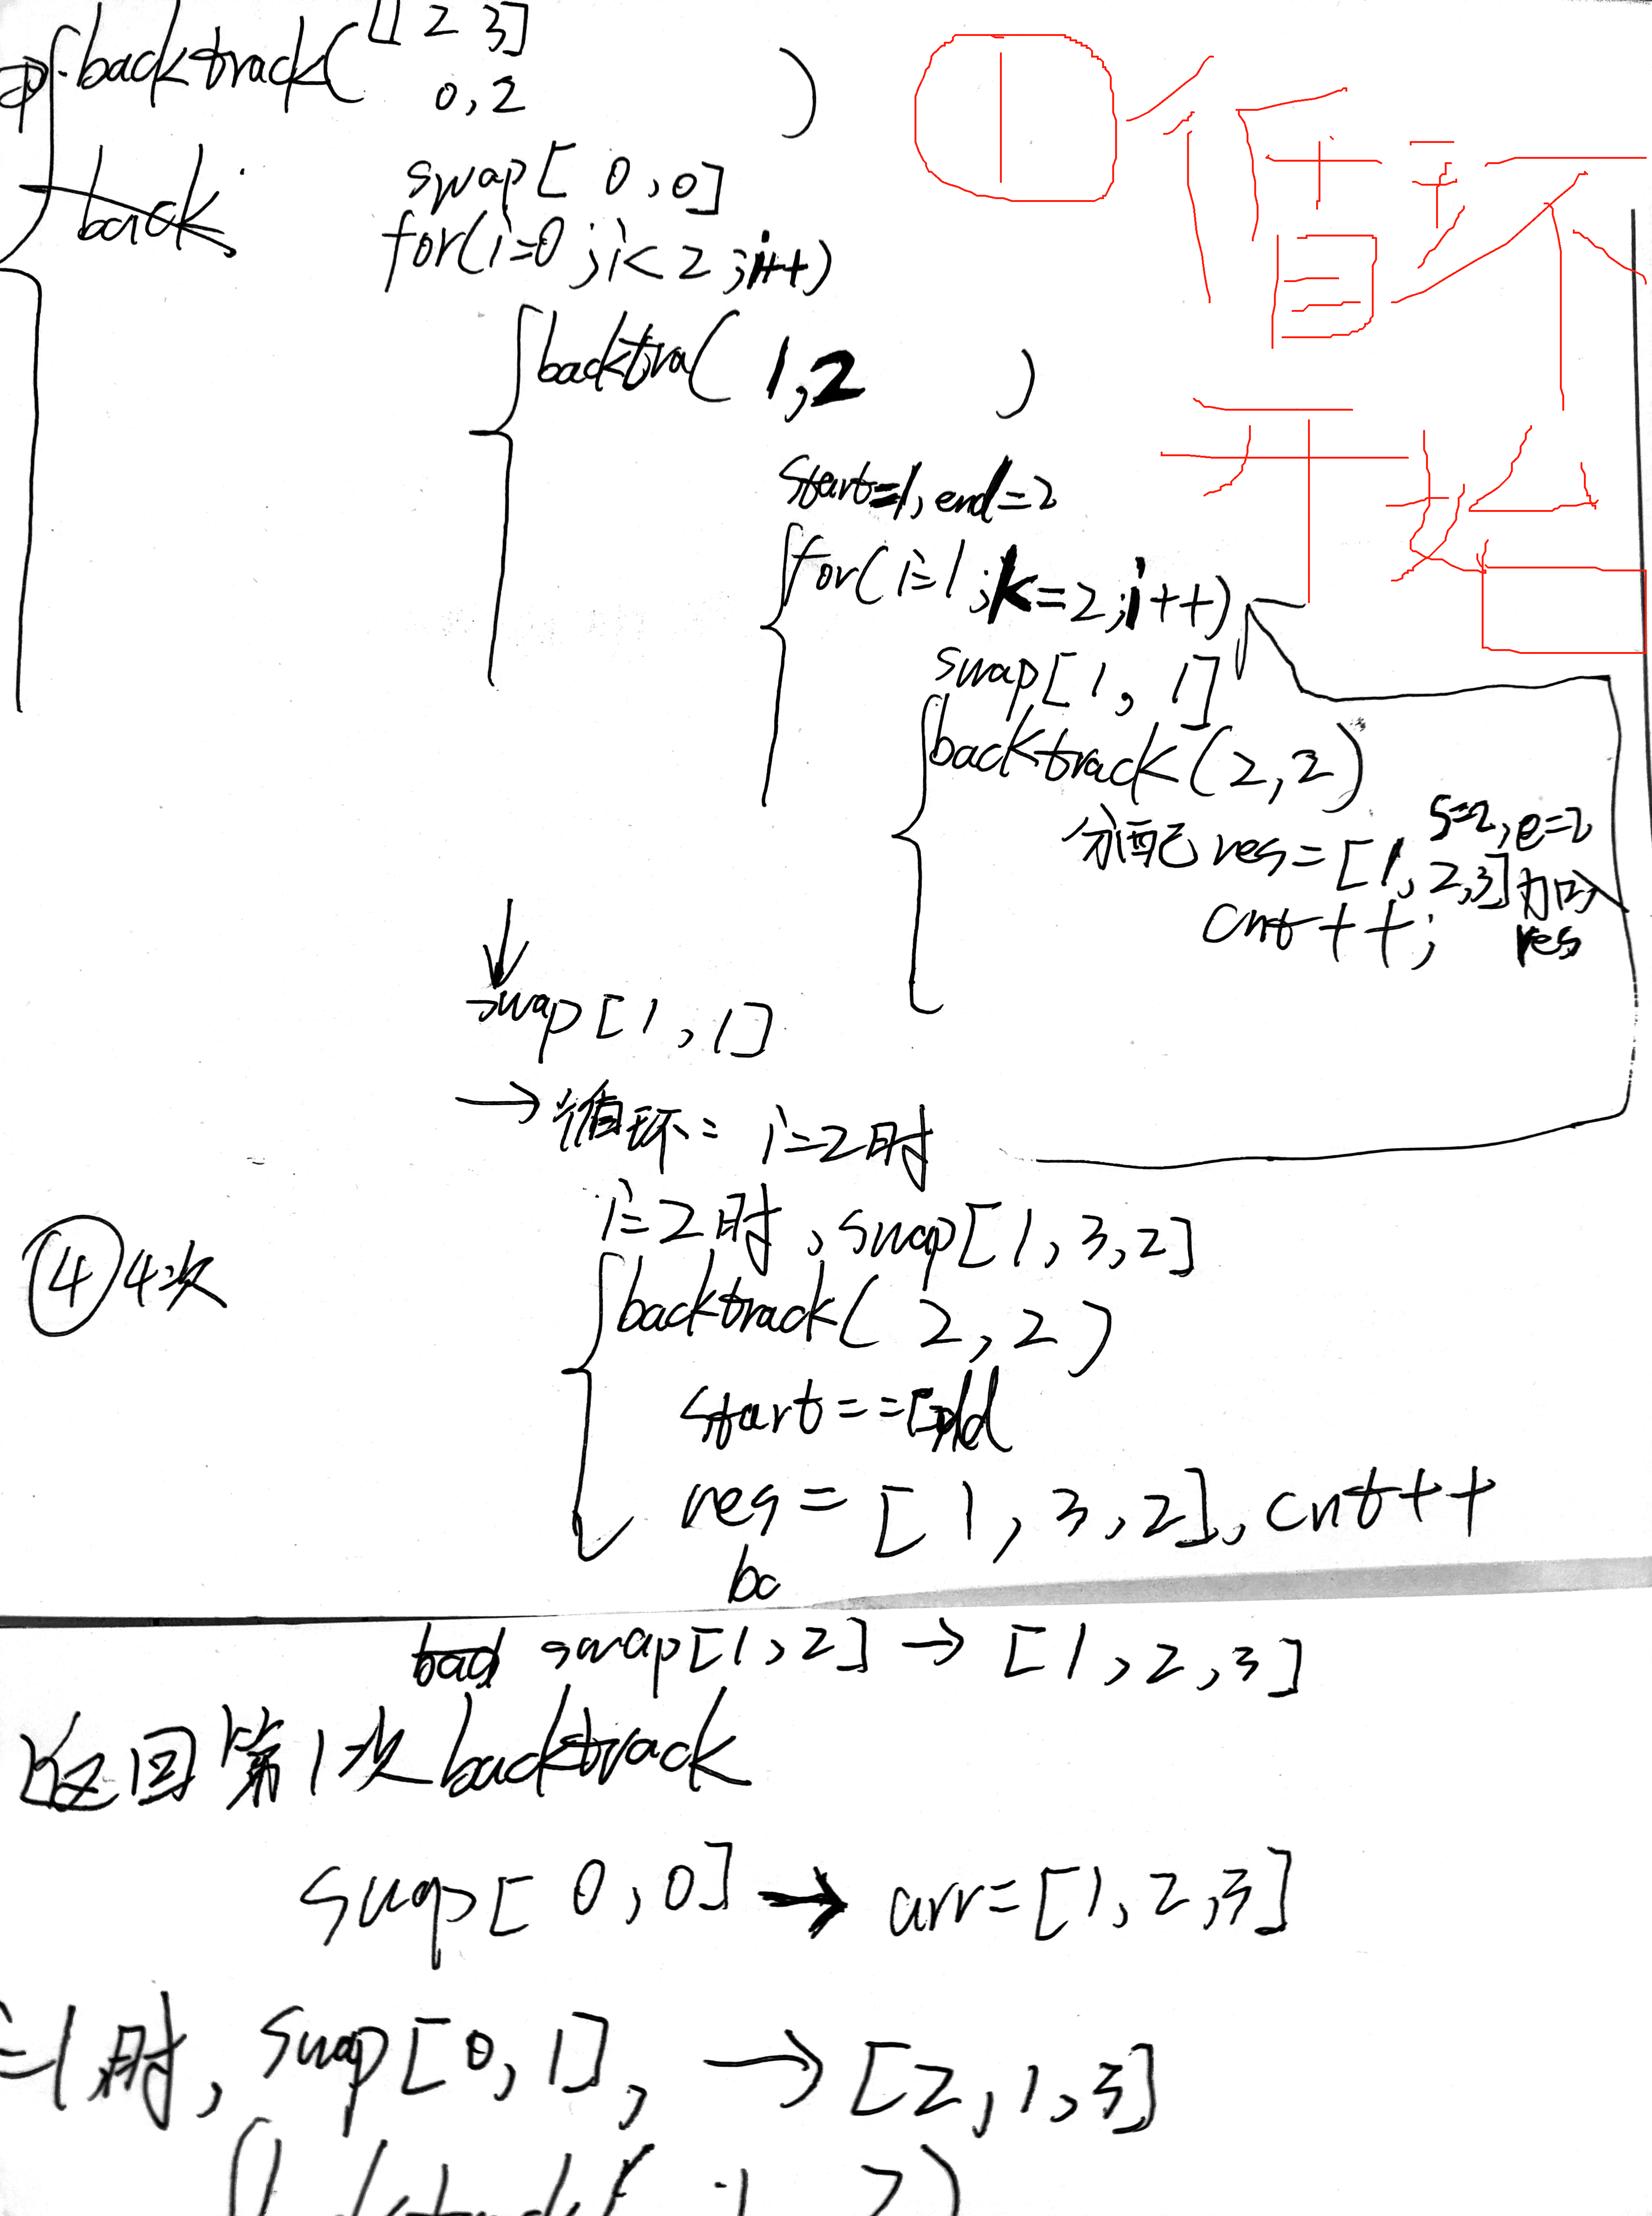 backtrack([1 2 3]
0,2 )
back
swap[ 0,0]
for(i=0;i<2;i++)
①循环
开始
backtra( 1,2 )
start=1,end=2
for(i=1;k=2;i++)
swap[1, 1]
backtrack(2,2)
s=2,e=2
分配 res=[1,2,3]加入
res
cnt++;
swap[1,1]
→循环: i=2时
i=2时,swap[1,3,2]
④4次
backtrack( 2,2)
start==
res=[1,3,2],cnt++
ba
swap[1,2]→[1,2,3]
返回第1次backtrack
swap[0,0]→arr=[1,2,3]
=1时,swap[0,1],→[2,1,3]